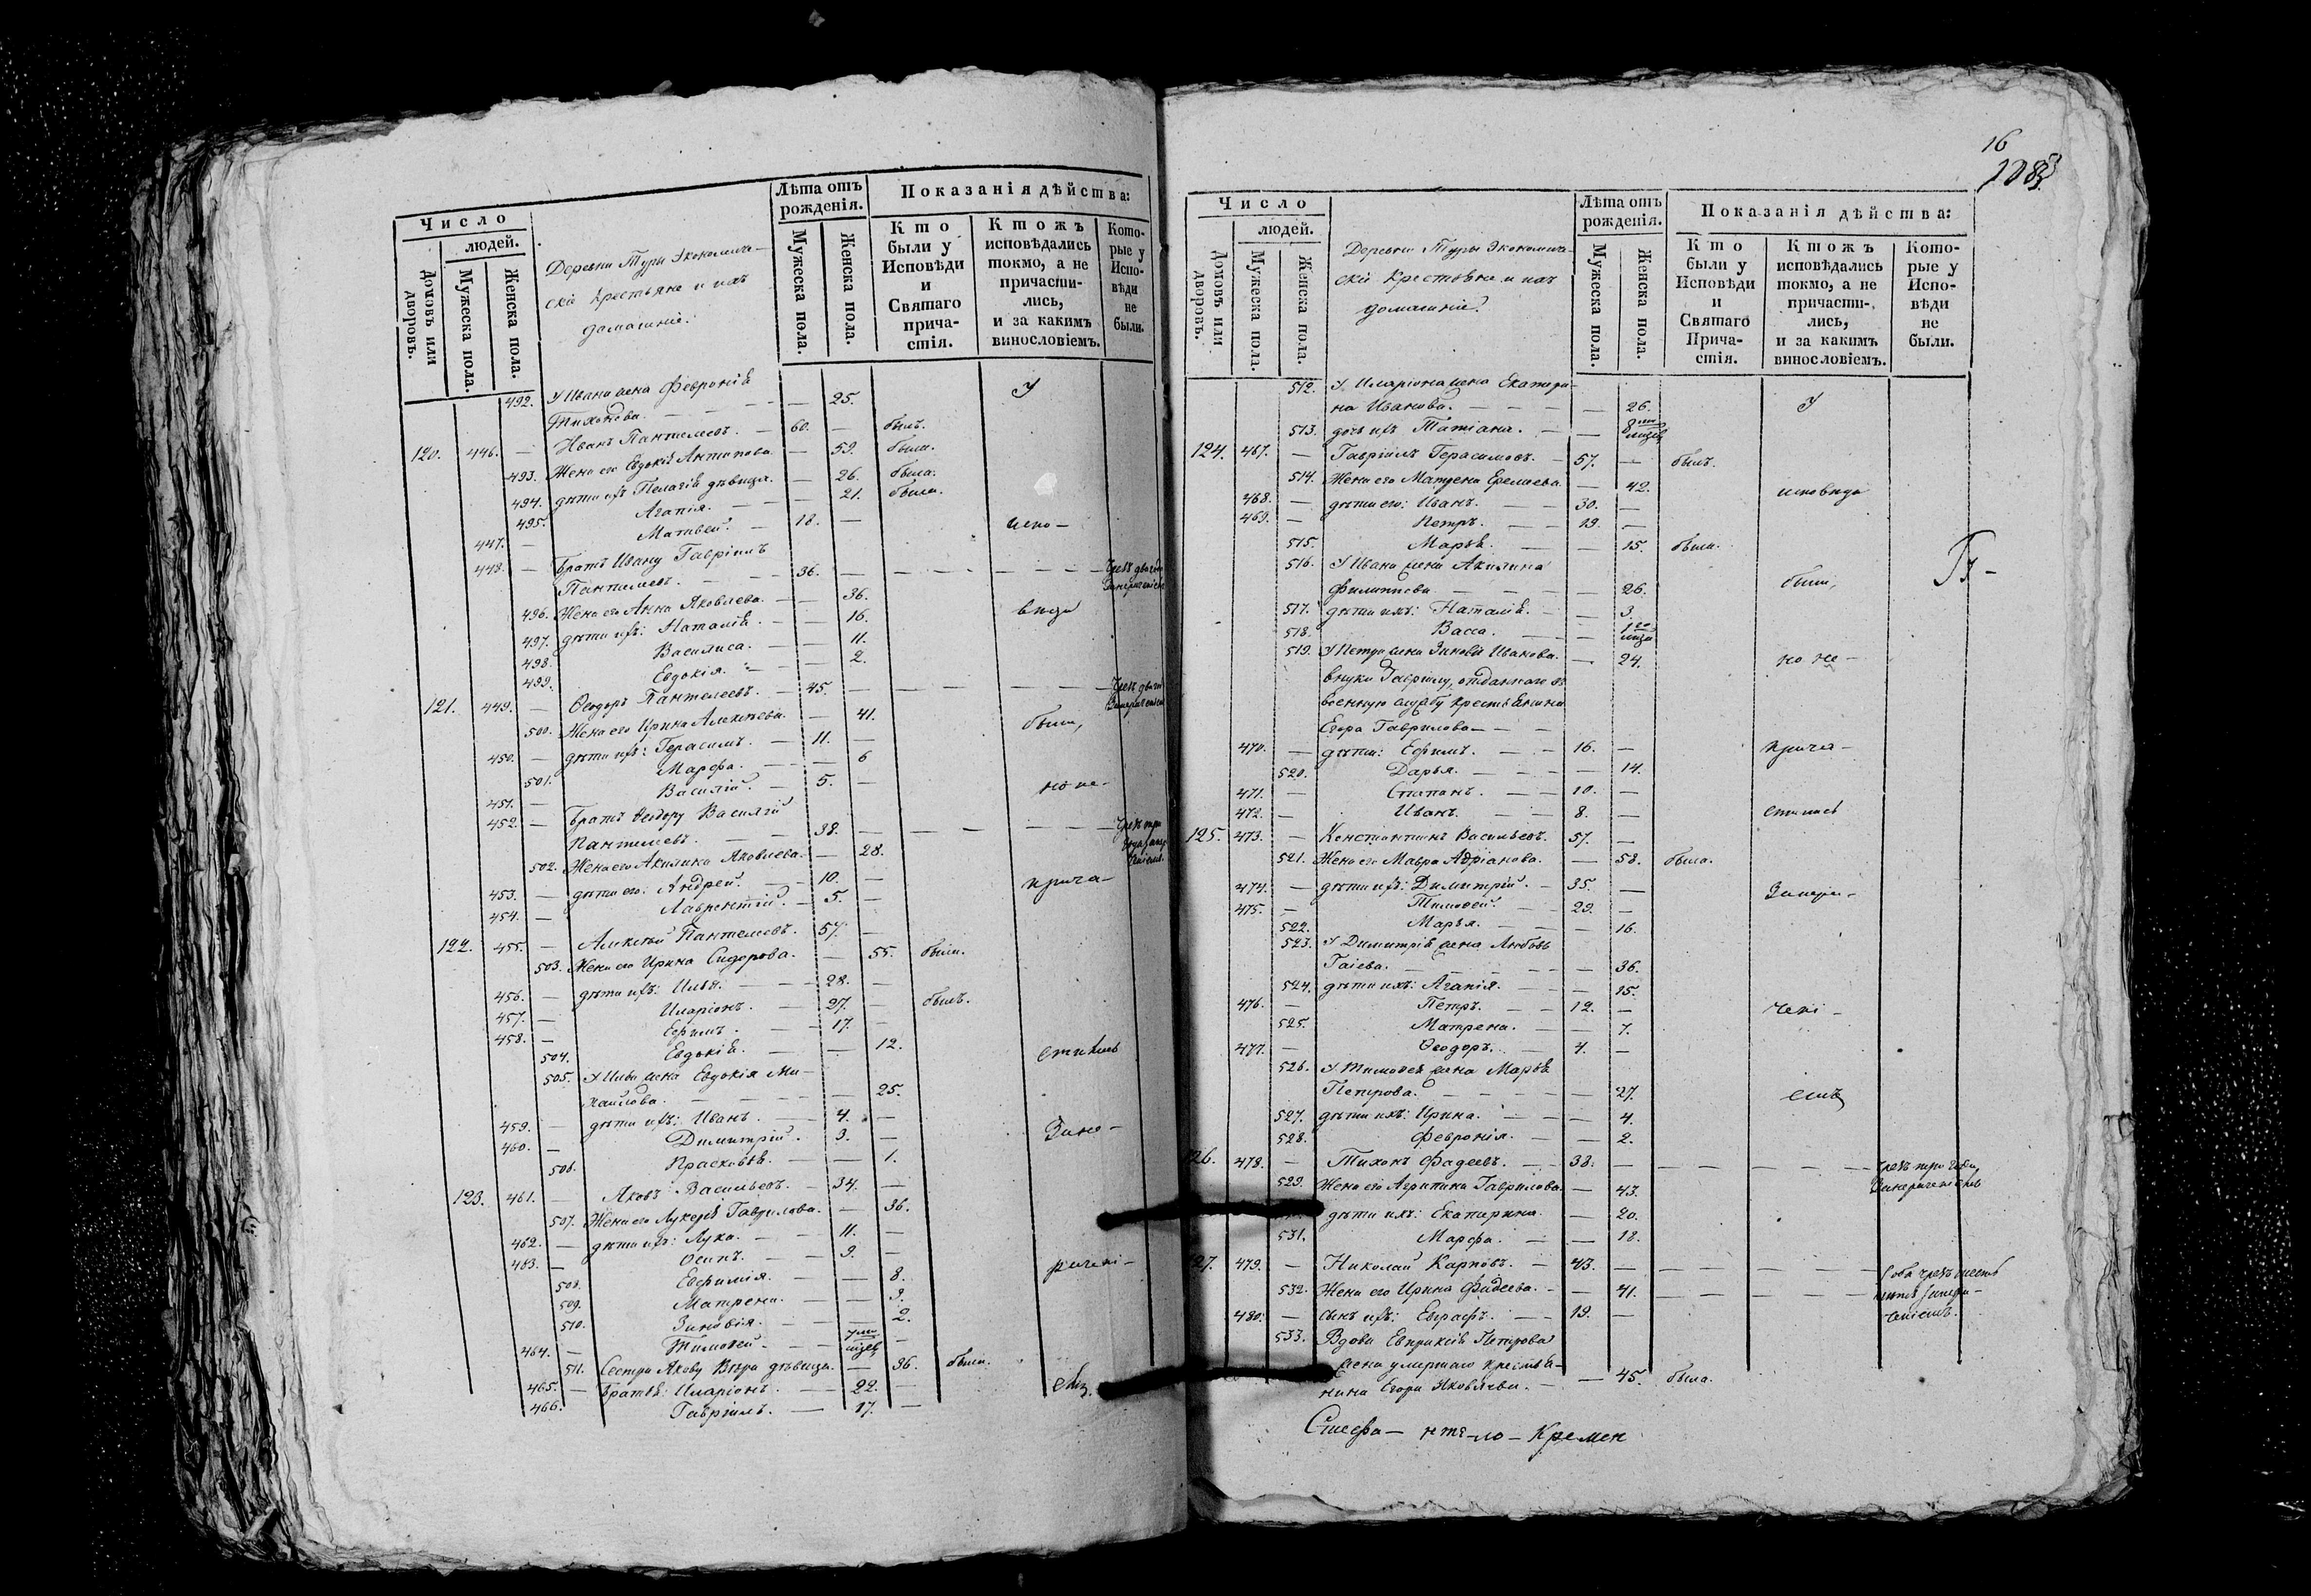 Число
людей.
Домовъ или дворовъ.
Мужеска пола.
Женска пола.
Деревни Туры Экономиче-
скіе крестьяне и ихъ
домашніе.
Лѣта отъ рожденія.
Мужеска пола.
Женска пола.
Показанія дѣйства:
Кто были у Исповѣди и Святаго прича- стія.
Ктожъ исповѣдались токмо, а не причасти- лись, и за какимъ винословіемъ.
Кото- рые у Испо- вѣди не были.
492. У Ивана жена Февронія
Тихонова. — — — — 25.
120. 446. — Иванъ Пантелеевъ. — 60. — былъ.
493. Жена его Евдокія Антипова — 59. была.
494. дѣти ихъ Пелагія дѣвица. — 26. была.
495. Агапія. — — 21. была.
447. — Матвей. — 18. — испо-
448. — Братъ Ивану Гавріилъ
Пантелеевъ. — — 36. — — — — — —
496. Жена его Анна Яковлева. — — 36.
497. дѣти ихъ: Наталія. — — 16. вѣда
498. Василиса. — — 11.
499. Евдокія. — — 2.
121. 449. — Ѳеодоръ Пантелеевъ. — 45. — — — — —
500. Жена его Ирина Алексѣева. — 41.
450. — дѣти ихъ: Герасимъ. — 11. — были,
501. Марфа. — — — 6
451. — Василій. — 5. — но не-
452. — Братъ Ѳеодору Василій
Пантелеевъ. — — 38. — — — — —
502. Жена его Акилина Яковлева. — 28.
453. — дѣти его: Андрей. — — 10. — прича-
454. — Лаврентій. — 5. —
122. 455. — Алексѣй Пантелеевъ. 57. —
503. Жена его Ирина Сидорова. — 55. была.
456. — дѣти ихъ: Илья. — — 28. —
457. — Иларіонъ. — 27. — былъ.
458. — Ефимъ. — — 17. —
504. Евдокія. — — 12. стились
505. У Ильи жена Евдокія Ми-
хаилова. — — — — — 25.
459. — дѣти ихъ: Иванъ. — — 4. —
460. — Димитрій. — 3. —
506. Прасковья. — — 1.
123. 461. — Яковъ Васильевъ. — 34. —
507. Жена его Лукерія Гаврилова. — 36.
462. — дѣти ихъ: Лука. — — 11. —
463. — Осипъ. — — 9. —
508. Евфимія. — — 8.
509. Матрена. — — 3.
510. Зиновія. — — 2.
464. — Тимофей. — —
511. Сестра Якову Вѣра дѣвица. — 36. была.
465. — Братья: Иларіонъ. — — 22. —
466. Гавріилъ. — 17. —
16
Число
людей.
Домовъ или дворовъ.
Мужеска пола.
Женска пола.
Деревни Туры Экономиче-
скіе Крестьяне и ихъ
домашніе.
Лѣта отъ рожденія.
Мужеска пола.
Женска пола.
Показанія дѣйства:
Кто были у Исповѣди и Святаго Прича- стія.
Ктожъ исповѣдались токмо, а не причасти- лись, и за какимъ винословіемъ.
Кото- рые у Испо- вѣди не были.
512. У Иларіона жена Екатери-
на Иванова. — — — — 26.
513. дочь ихъ Татіана. — —
124. 467. — Гавріилъ Герасимовъ. — 57. — былъ.
514. Жена его Матрена Еремеева. — 42.
468. — дѣти его: Иванъ. — — 30. — исповѣда
469. — Петръ. — — 19. —
515. Марья. — — 15. была.
516. У Ивана жена Акилина
Филиппова — — — — 26. были,
517. дѣти ихъ: Наталія. — — 3.
518. Васса. — —
519. У Петра жена Зиновія Иванова. — 24. но не-
внуки Гаврилу, отданнаго въ
военную службу крестьянина
Егора Гаврилова — — —
470. — дѣти: Ефимъ. — — 16. — прича-
520. Дарья. — — — 14.
471. — Степанъ. — — 10. —
472. — Иванъ. — — 8. — стились
125. 473. — Константинъ Васильевъ. 57. —
521. Жена его Мавра Адріанова. — 58. была.
474. — дѣти ихъ: Димитрій. — 35. —
475. — Тимофей. — — 29. —
522. Марья. — — — 16.
523. У Димитрія жена Любовь
Гаіева. — — — — — 36.
524. дѣти ихъ: Агапія. — — — 15.
476. — Петръ. — — 12. — чені-
525. Матрена. — — 7.
477. — Ѳеодоръ. — 4. —
526. У Тимофея жена Марья
Петрова. — — — — — 27. емъ
527. дѣти ихъ: Ирина. — — — 4.
528. Февронія. — — 2.
126. 478. — Тихонъ Фадеевъ. — — 38. — — — — — чрезъ три года,
529. Жена его Агрипина Гаврилова. — 43.
дѣти ихъ: Екатерина. — — 20.
531. Марфа. — — 18.
127. 479. — Николай Карповъ. — 43. — — — — —
532. Жена его Ирина Фадеева. — — 41. — — — —
480. — сынъ ихъ: Евграфъ. — — 19. —
533. Вдова Евпраксія Петрова
жена умершаго крестья-
нина Егора Яковлева. — — 45. была.